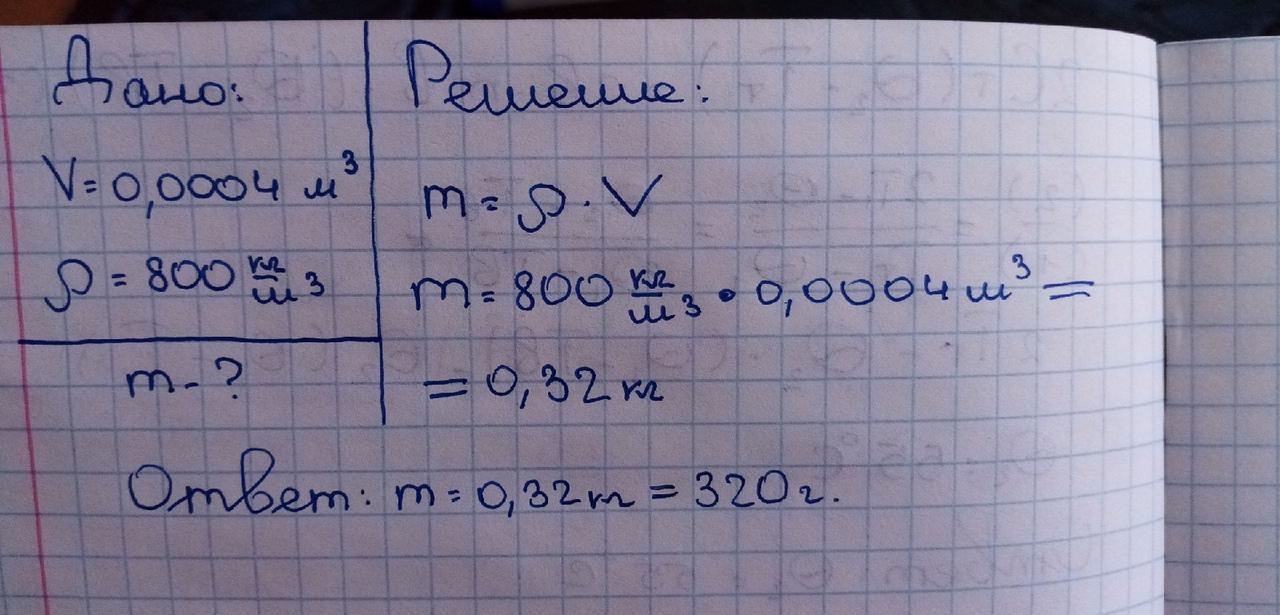 Дано:
V=0,0004 м³
ρ=800 кг/м³
m-?
Решение:
m=ρ·V
m=800 кг/м³·0,0004 м³=
=0,32 кг
Ответ: m=0,32 кг=320 г.